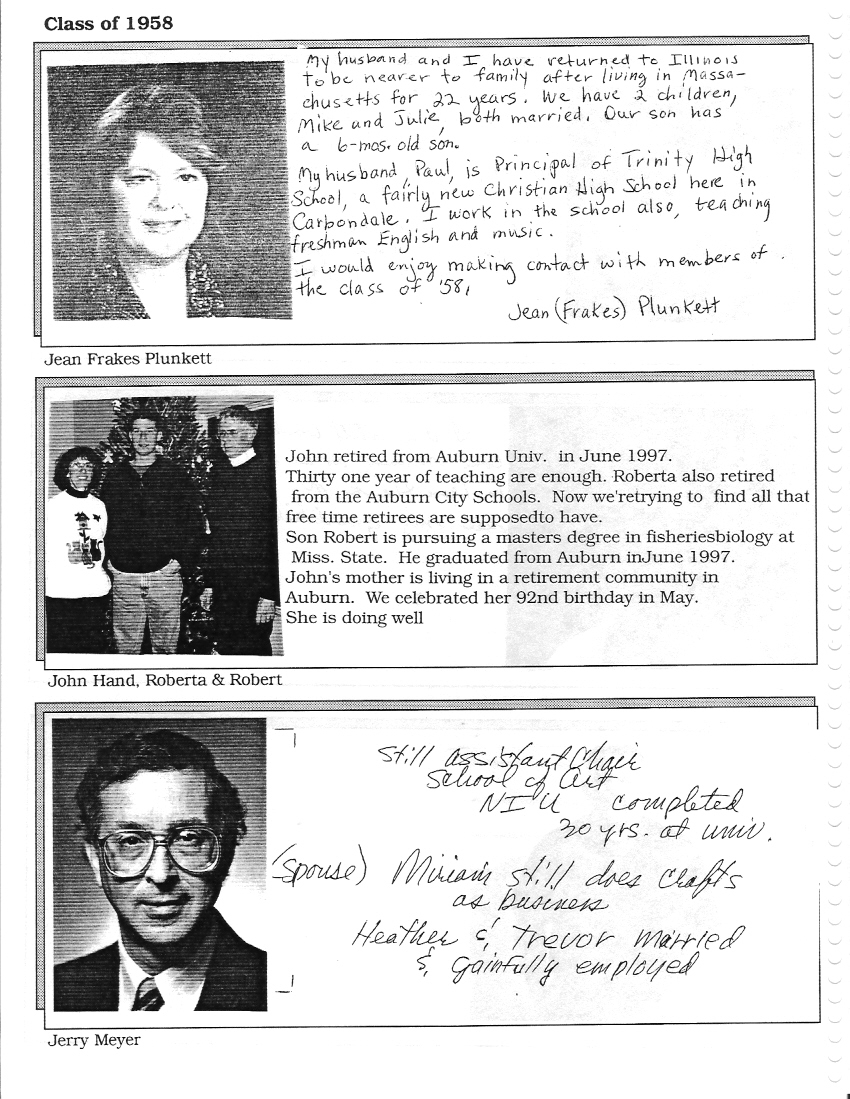 Class of 1958
My husband and I have returned to Illinois
to be nearer to family after living in Massa-
chusetts for 22 years. We have 2 children,
Mike and Julie, both married. Our son has
a 6-mos. old son.
My husband, Paul, is Principal of Trinity High
School, a fairly new Christian High School here in
Carbondale. I work in the school also, teaching
freshman English and music.
I would enjoy making contact with members of
the class of '58,
Jean (Frakes) Plunkett
Jean Frakes Plunkett
John retired from Auburn Univ. in June 1997.
Thirty one year of teaching are enough. Roberta also retired
from the Auburn City Schools. Now we'retrying to find all that
free time retirees are supposedto have.
Son Robert is pursuing a masters degree in fisheriesbiology at
Miss. State. He graduated from Auburn inJune 1997.
John's mother is living in a retirement community in
Auburn. We celebrated her 92nd birthday in May.
She is doing well
John Hand, Roberta & Robert
Still assistant Chair
School of Art
NIU completed
30 yrs. at univ.
(Spouse) Miriam still does crafts
as business
Heather & Trevor married
& gainfully employed
Jerry Meyer